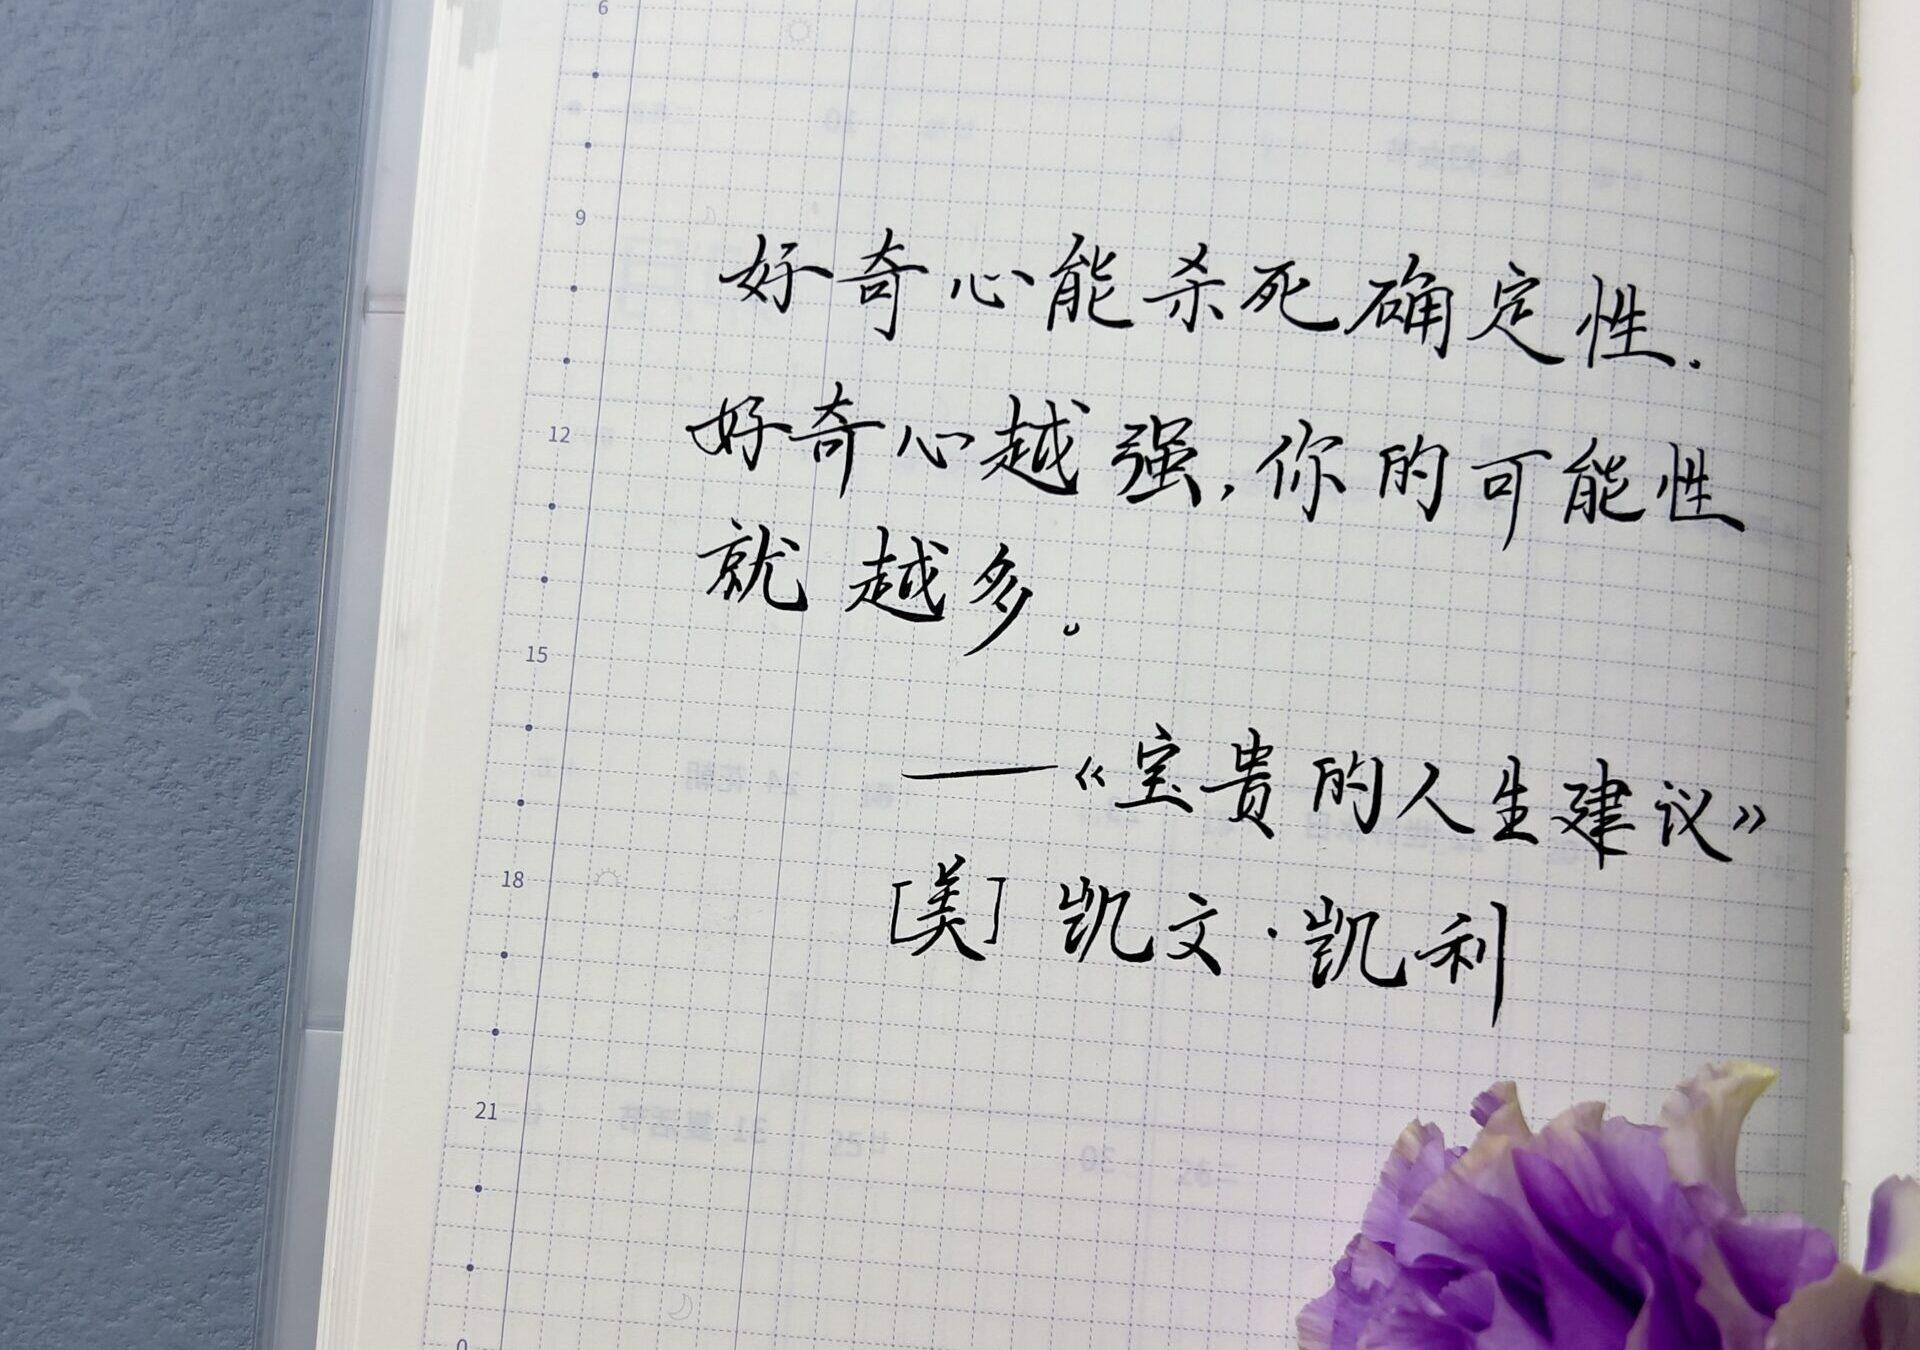 6
9
12
15
18
21
0
好奇心能杀死确定性.
好奇心越强,你的可能性
就越多。
——《宝贵的人生建议》
[美] 凯文·凯利